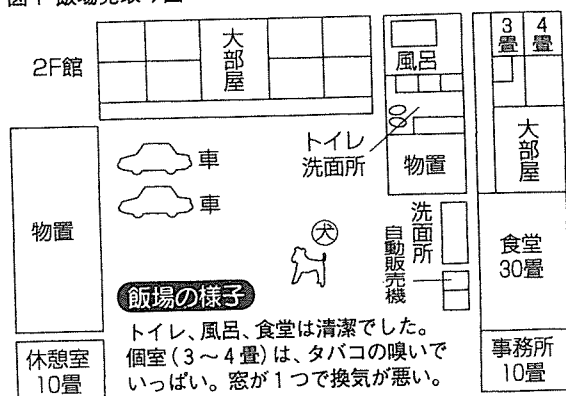 2F館
大部屋
風呂
3畳
4畳
トイレ
洗面所
物置
大部屋
車
車
物置
犬
洗面所
自動販売機
食堂
30畳
飯場の様子
トイレ、風呂、食堂は清潔でした。
個室(3～4畳)は、タバコの嗅いで
いっぱい。窓が1つで換気が悪い。
休憩室
10畳
事務所
10畳